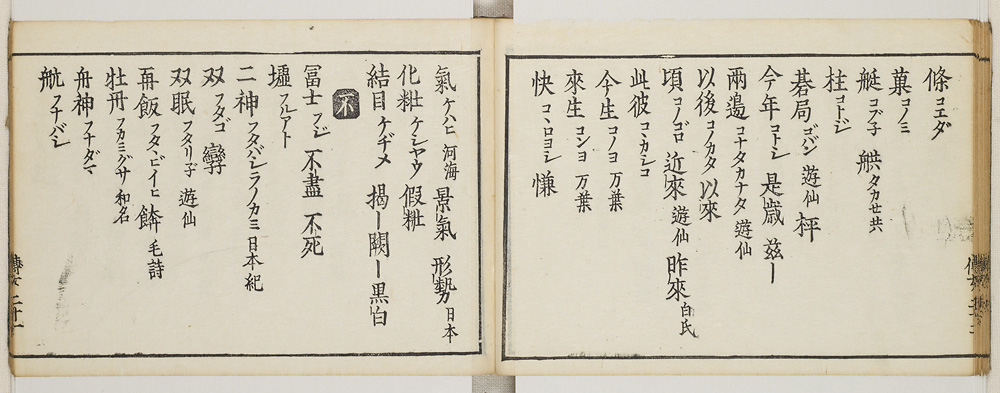 條コエダ
菓コノミ
艇コブ子 艓タカセ共
柱コトジ
碁局ゴバン 遊仙 枰
今年コトシ 是歳 玆ー
兩邉コナタカナタ 遊仙
以後コノカタ 以來
頃コノゴロ 近來 遊仙 昨來 白氏
此彼コヽカシコ
今生コノヨ 万葉
來生コンヨ 万葉
快コヽロヨシ 慊
氣ケハヒ 河海 景氣 形勢 日本
化粧ケシヤウ 假粧
結目ケヂメ 掲ー 闕ー 黒白
不
冨士フジ 不盡 不死
墟フルアト
二神フタバシラノカミ 日本紀
双フタゴ 孿
双眠フタリ子 遊仙
再飯フタヽビイヒ 餴 毛詩
牡丹フカミグサ 和名
舟神フナダマ
航フナバシ
二十一